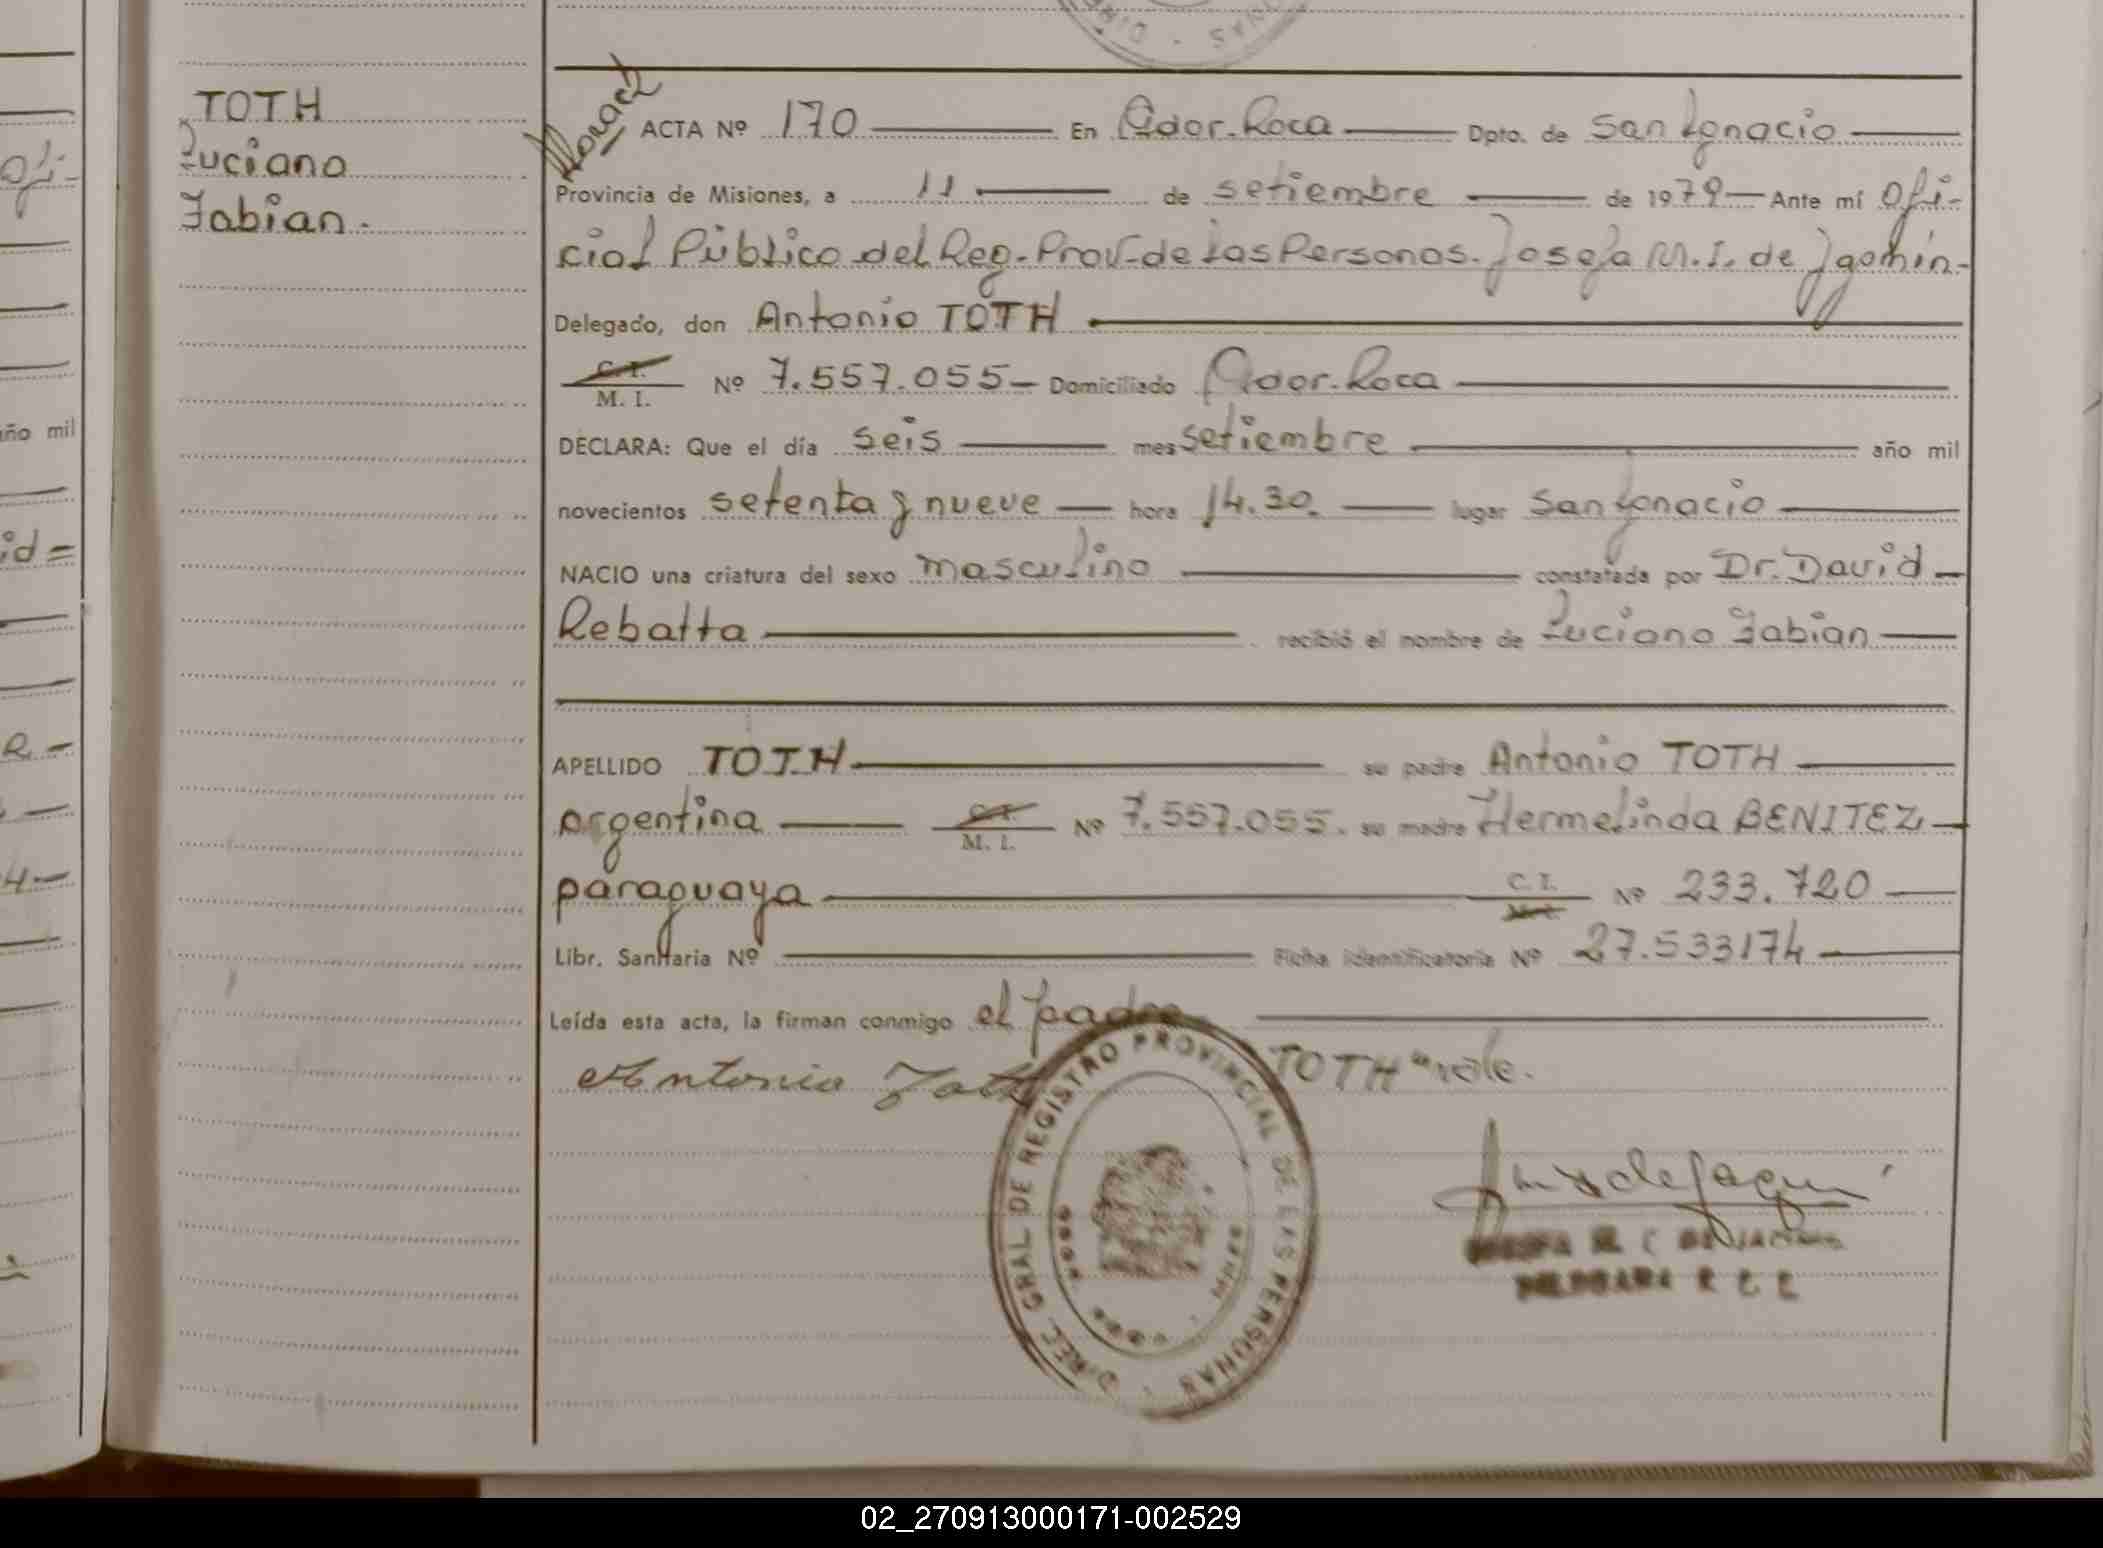 TOTH
Luciano
Fabian.
ACTA Nº 170 En Gdor. Roca Dpto. de San Ignacio
Provincia de Misiones, a 11 de setiembre de 1979 Ante mí Ofi-
cial Público del Reg. Prov. de las Personas. Josefa M. I. de
Delegado, don Antonio TOTH
C. I.
M. I. Nº 7.557.055 Domiciliado Gdor. Roca
DECLARA: Que el día seis mes setiembre año mil
novecientos setenta y nueve hora 14.30. lugar San Ignacio
NACIO una criatura del sexo masculino constatada por Dr. David
Rebatta recibió el nombre de Luciano Fabian
APELLIDO TOTH su padre Antonio TOTH
argentina C. I. M. I. Nº 7.557.055. su madre Hermelinda BENITEZ
paraguaya C. I. M. I. Nº 233.720
Libr. Sanitaria Nº Ficha identificatoria Nº 27.533174
Leída esta acta, la firman conmigo el padre
Antonio Toth TOTH "vale.
DIREC. GRAL DE REGISTRO PROVINCIAL DE LAS PERSONAS
DELEGADA R C
Ofi-
año mil
id =
02_270913000171-002529